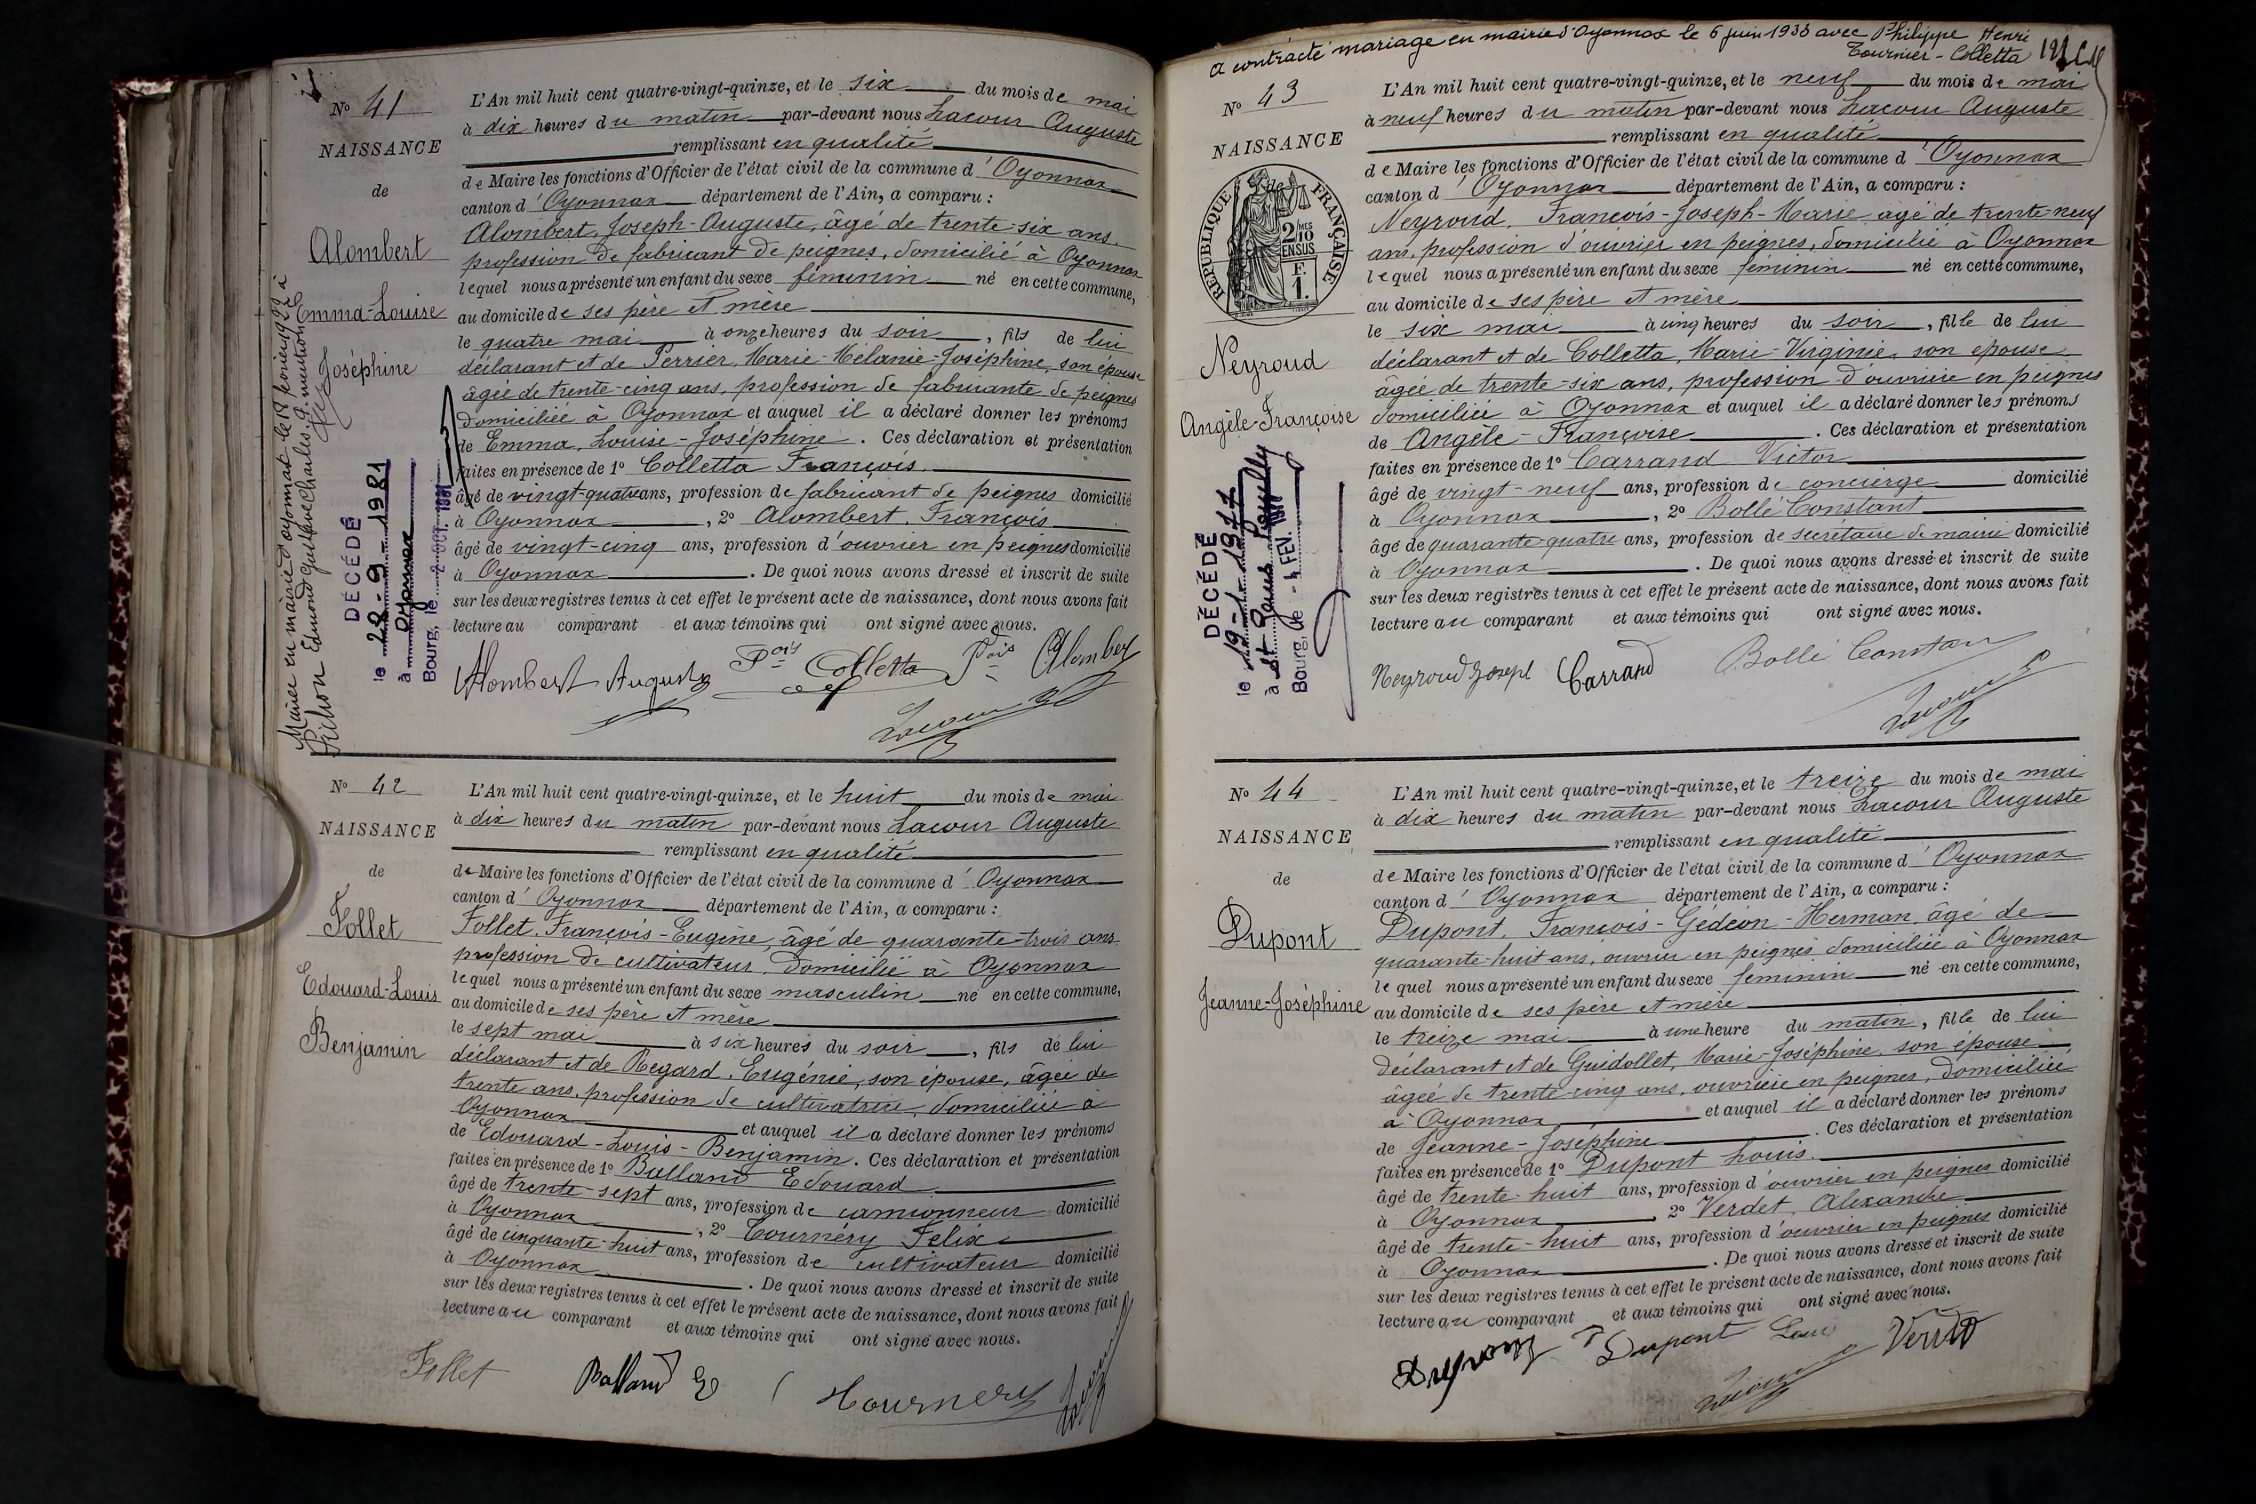 Nº 41
NAISSANCE
de
Alombert
Emma-Louise
Joséphine
Pichon Edmond Gustave Charles. D. mention
DÉCÉDÉ
le 29-9-1981
à Oyonnax
Bourg, le 2 OCT. 1981
L'An mil huit cent quatre-vingt-quinze, et le six du mois de mai
à dix heures du matin par-devant nous Lacour Auguste
remplissant en qualité
de Maire les fonctions d'Officier de l'état civil de la commune d'Oyonnax
canton d'Oyonnax département de l'Ain, a comparu :
Alombert, Joseph-Auguste, âgé de trente-six ans,
profession de fabricant de peignes, domicilié à Oyonnax
lequel nous a présenté un enfant du sexe féminin né en cette commune,
au domicile de ses père et mère
le quatre mai à onze heures du soir, fils de lui
déclarant et de Perrier, Marie-Mélanie-Joséphine, son épouse
âgée de trente-cinq ans, profession de fabricante de peignes
domiciliée à Oyonnax et auquel il a déclaré donner les prénoms
de Emma, Louise-Joséphine. Ces déclaration et présentation
faites en présence de 1º Colletta François
âgé de vingt-quatre ans, profession de fabricant de peignes domicilié
à Oyonnax, 2º Alombert, François
âgé de vingt-cinq ans, profession d'ouvrier en peignes domicilié
à Oyonnax. De quoi nous avons dressé et inscrit de suite
sur les deux registres tenus à cet effet le présent acte de naissance, dont nous avons fait
lecture au comparant et aux témoins qui ont signé avec nous.
Alombert Auguste Fois Colletta Fois Alombert
Lacour
Nº 42
NAISSANCE
de
Follet
Edouard-Louis
Benjamin
L'An mil huit cent quatre-vingt-quinze, et le huit du mois de mai
à dix heures du matin par-devant nous Lacour Auguste
remplissant en qualité
de Maire les fonctions d'Officier de l'état civil de la commune d'Oyonnax
canton d'Oyonnax département de l'Ain, a comparu :
Follet, François-Eugène, âgé de quarante-trois ans
profession de cultivateur, domicilié à Oyonnax
lequel nous a présenté un enfant du sexe masculin né en cette commune,
au domicile de ses père et mère
le sept mai à six heures du soir, fils de lui
déclarant et de Regard, Eugénie, son épouse, âgée de
trente ans, profession de cultivatrice, domiciliée à
Oyonnax et auquel il a déclaré donner les prénoms
de Edouard-Louis-Benjamin. Ces déclaration et présentation
faites en présence de 1º Balland Edouard
âgé de trente-sept ans, profession de camionneur domicilié
à Oyonnax, 2º Tournéry Félix
âgé de cinquante-huit ans, profession de cultivateur domicilié
à Oyonnax. De quoi nous avons dressé et inscrit de suite
sur les deux registres tenus à cet effet le présent acte de naissance, dont nous avons fait
lecture au comparant et aux témoins qui ont signé avec nous.
Follet Balland E Tournery
a contracté mariage en mairie d'Oyonnax le 6 juin 1935 avec Philippe Henri
Tournier-Colletta
Nº 43
NAISSANCE
de
RÉPUBLIQUE FRANÇAISE
2/10 EN SUS
F. 1.
Neyroud
Angèle-Françoise
DÉCÉDÉ
le 19-1-1977
à St Genis Pouilly
Bourg, le - 4 FEV. 1977
L'An mil huit cent quatre-vingt-quinze, et le neuf du mois de mai
à neuf heures du matin par-devant nous Lacour Auguste
remplissant en qualité
de Maire les fonctions d'Officier de l'état civil de la commune d'Oyonnax
canton d'Oyonnax département de l'Ain, a comparu :
Neyroud, François-Joseph-Marie, âgé de trente-neuf
ans, profession d'ouvrier en peignes, domicilié à Oyonnax
lequel nous a présenté un enfant du sexe féminin né en cette commune,
au domicile de ses père et mère
le six mai à cinq heures du soir, fille de lui
déclarant et de Colletta, Marie-Virginie, son épouse
âgée de trente-six ans, profession d'ouvrière en peignes
domiciliée à Oyonnax et auquel il a déclaré donner les prénoms
de Angèle-Françoise. Ces déclaration et présentation
faites en présence de 1º Carrand Victor
âgé de vingt-neuf ans, profession de concierge domicilié
à Oyonnax, 2º Bollé Constant
âgé de quarante-quatre ans, profession de secrétaire de mairie domicilié
à Oyonnax. De quoi nous avons dressé et inscrit de suite
sur les deux registres tenus à cet effet le présent acte de naissance, dont nous avons fait
lecture au comparant et aux témoins qui ont signé avec nous.
Neyroud Joseph Carrand Bollé Constant
Lacour
Nº 44
NAISSANCE
de
Dupont
Jeanne-Joséphine
L'An mil huit cent quatre-vingt-quinze, et le treize du mois de mai
à dix heures du matin par-devant nous Lacour Auguste
remplissant en qualité
de Maire les fonctions d'Officier de l'état civil de la commune d'Oyonnax
canton d'Oyonnax département de l'Ain, a comparu :
Dupont, François-Gédéon-Herman, âgé de
quarante-huit ans, ouvrier en peignes domicilié à Oyonnax
lequel nous a présenté un enfant du sexe féminin né en cette commune,
au domicile de ses père et mère
le treize mai à une heure du matin, fille de lui
déclarant et de Guidollet, Marie-Joséphine, son épouse
âgée de trente-cinq ans, ouvrière en peignes, domiciliée
à Oyonnax et auquel il a déclaré donner les prénoms
de Jeanne-Joséphine. Ces déclaration et présentation
faites en présence de 1º Dupont Louis
âgé de trente-huit ans, profession d'ouvrier en peignes domicilié
à Oyonnax 2º Verdet, Alexandre
âgé de trente-huit ans, profession d'ouvrier en peignes domicilié
à Oyonnax. De quoi nous avons dressé et inscrit de suite
sur les deux registres tenus à cet effet le présent acte de naissance, dont nous avons fait
lecture au comparant et aux témoins qui ont signé avec nous.
Dupont Dupont Louis Verdet
Lacour